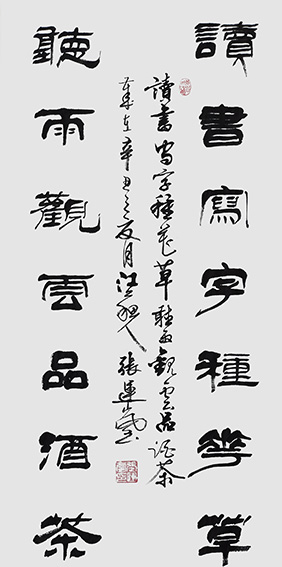 讀書寫字種花草
讀書寫字種花草聽雨觀雲品酒茶
歲在辛丑之夏月 張連
聽雨觀雲品酒茶